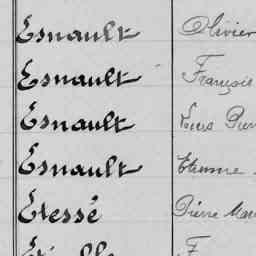 Esnault Olivier
Esnault François
Esnault Louis Pierre
Esnault Etienne
Etessé Pierre